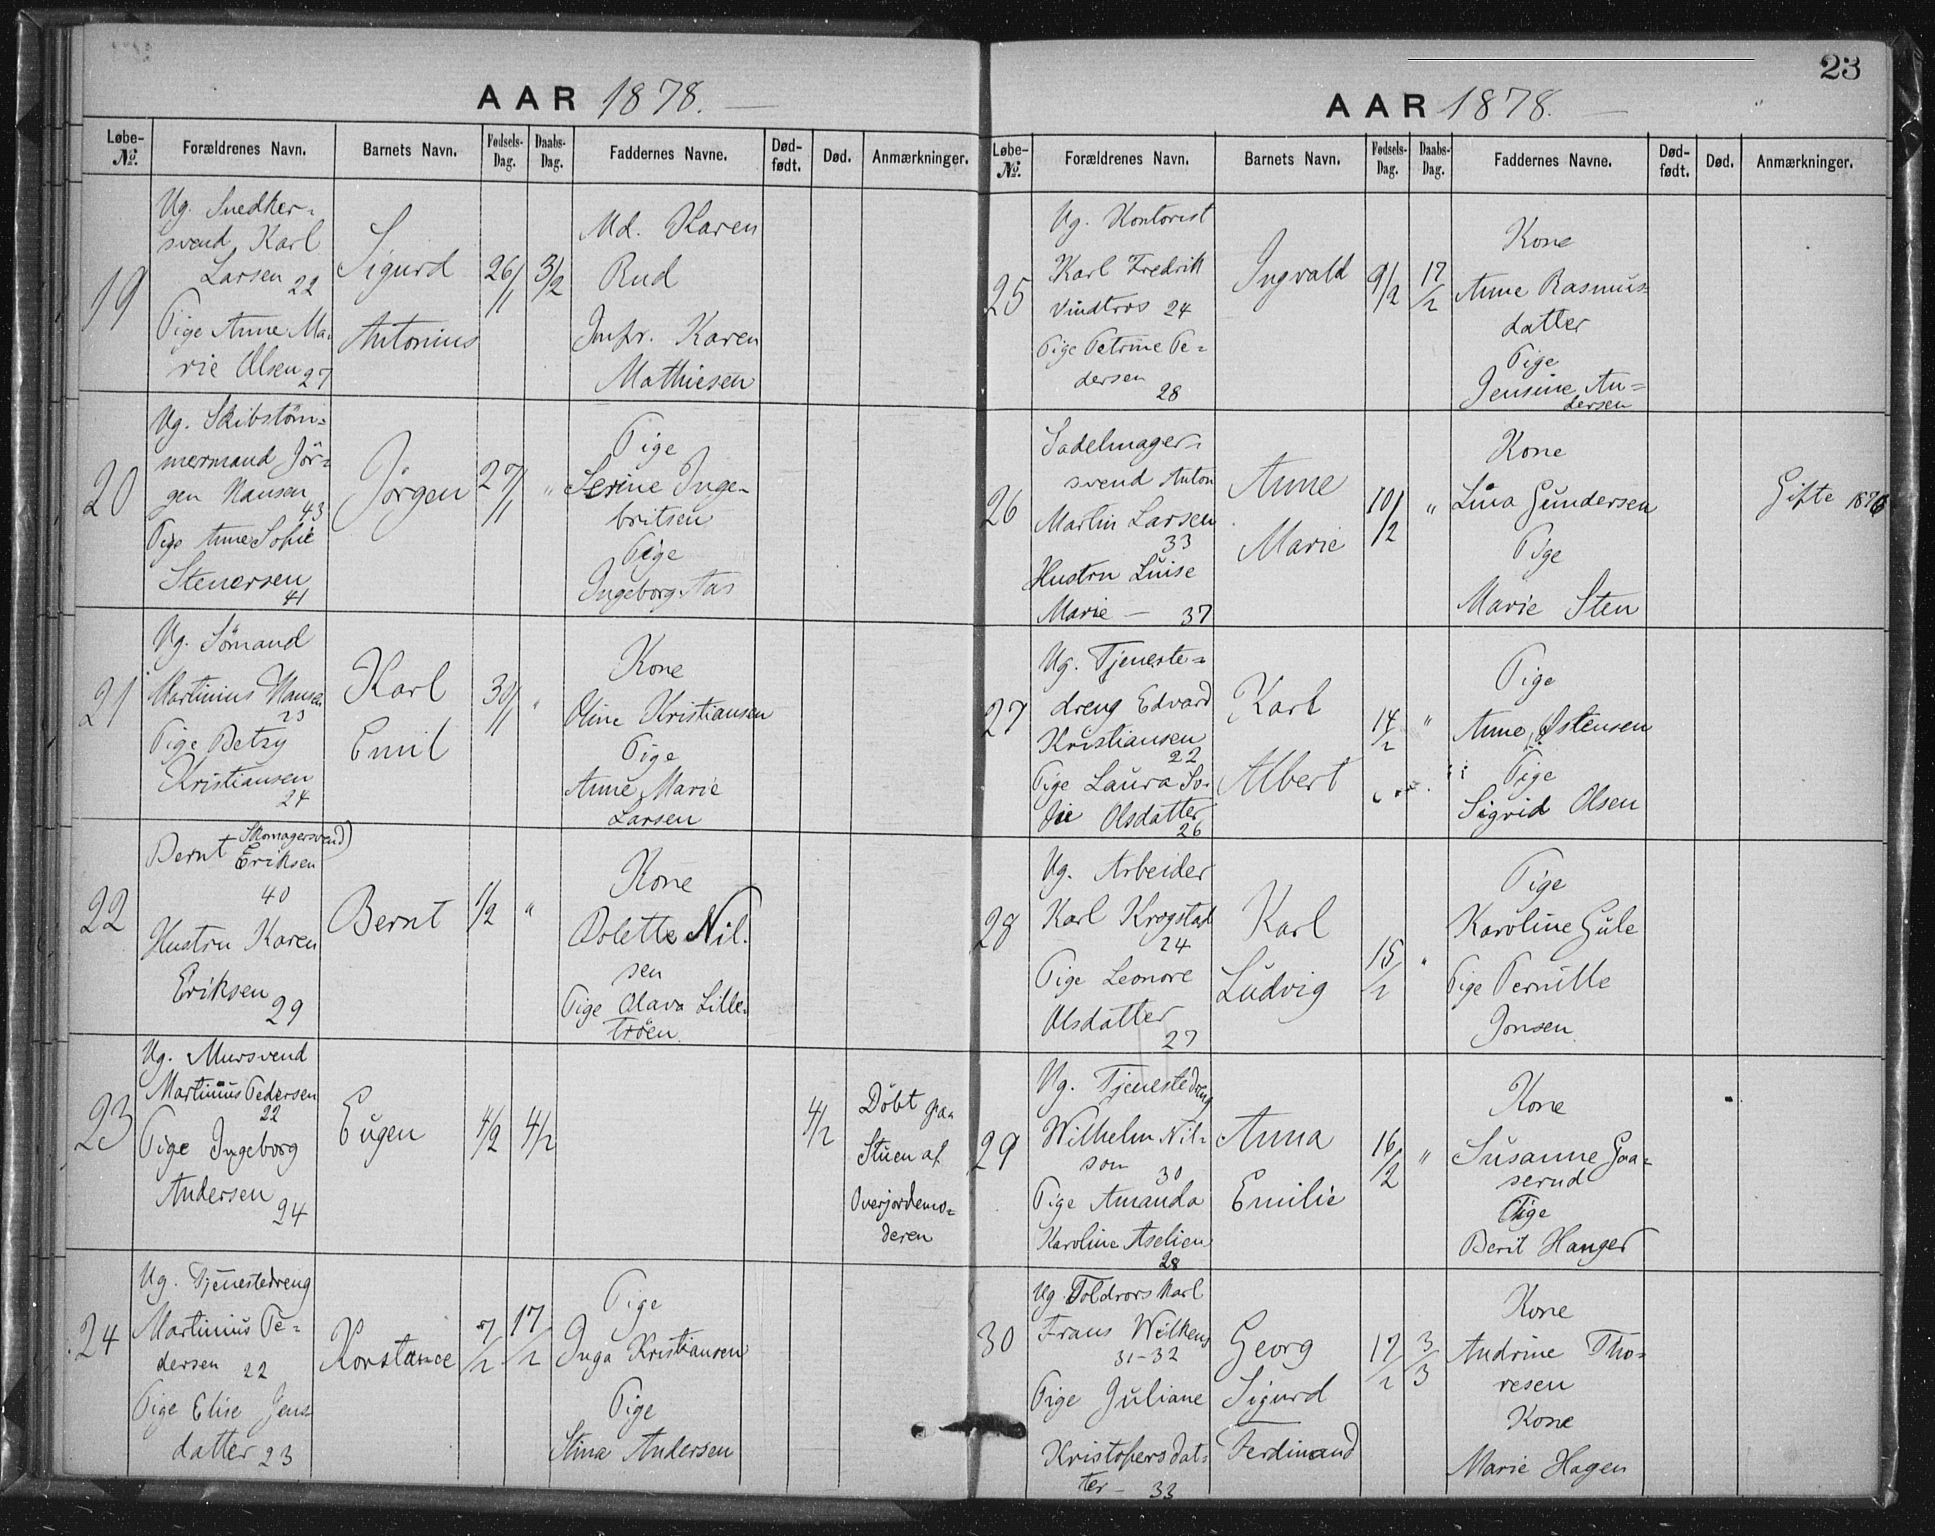 AAR 1878.
Løbe-No.
Forældrenes Navn.
Barnets Navn.
Fødsels-Dag.
Daabs-Dag.
Faddernes Navne.
Død-født.
Død.
Anmærkninger.
19
Ug. Snedker-
svend Karl
Larsen 22
Pige Anne Ma-
rie Olsen 27
Sigurd
Antonius
26/1
3/2
Md. Karen
Rud
Jmfr. Karen
Mathiesen
20
Ug. Skibstøm-
mermand Jör-
gen Hansen
43
Pige Anne Sofie
Stenersen
41
Jörgen
27/1
"
Pige
Serine Inge-
britsen
Pige
Ingeborg Aas
21
Ug. Sömand
Martinius Hansen
23
Pige Betzy
Kristiansen
24
Karl
Emil
30/1
"
Kone
Oline Kristiansen
Pige
Anne Marie
Larsen
22
Skomagersvend)
Bernt Eriksen
40
Hustru Karen
Eriksen
29
Bernt
1/2
"
Kone
Dolette Nil-
sen
Pige Olava Lille-
tröen.
23
Ug. Mursvend
Martinius Pedersen
22
Pige Ingeborg
Andersen
24
Eugen
4/2
4/2
4/2
Döbt paa
Stuen af
Overjordemo-
deren
24
Ug. Tjenestedreng
Martinius Pe-
dersen 22
Pige Elise Jens
datter 23
Konstance
7/2
17/2
Pige
Inga Kristiansen
Pige
Stina Andersen
23
AAR 1878.
Løbe-No.
Forældrenes Navn.
Barnets Navn.
Fødsels-Dag.
Daabs-Dag.
Faddernes Navne.
Død-født.
Død.
Anmærkninger.
25
Ug. Kontorist
Karl Fredrik
Vindtros 24
Pige Petrine Pe-
dersen
28
Ingvald
9/2
17/2
Kone
Anne Rasmus-
datter
Pige
Jensine An-
dersen
26
Sadelmager-
svend Anton
Martin Larsen
33
Hustru Luise
Marie — 37
Anne
Marie
10/2
"
Kone
Lina Gundersen
Pige
Marie Sten
Gifte 1876
27
Ug. Tjeneste-
dreng Edvard
Kristiansen
22
Pige Laura So-
fie Olsdatter
26
Karl
Albert
14/2
"
Pige
Anne Østensen
Pige
Sigrid Olsen
28
Ug. Arbeider
Karl Krogstad
24
Pige Leonore
Olsdatter
27
Karl
Ludvig
15/2
"
Pige
Karoline Gule
Pige Pernille
Jonsen.
29
Ug. Tjenestedreng
Wilhelm Nil-
son
30
Pige Amanda
Karoline Aselien
28
Anna
Emilie
16/2
"
Kone
Susanne Gaa-
serud
Pige
Berit Hanger
30
Ug. Toldrors Karl
Frans Wilkens
31-32
Pige Juliane
Kristofersdat-
ter — 33
Georg
Sigurd
Ferdinand
17/2
3/3
Kone
Andrine Tho-
resen
Kone
Marie Hagen